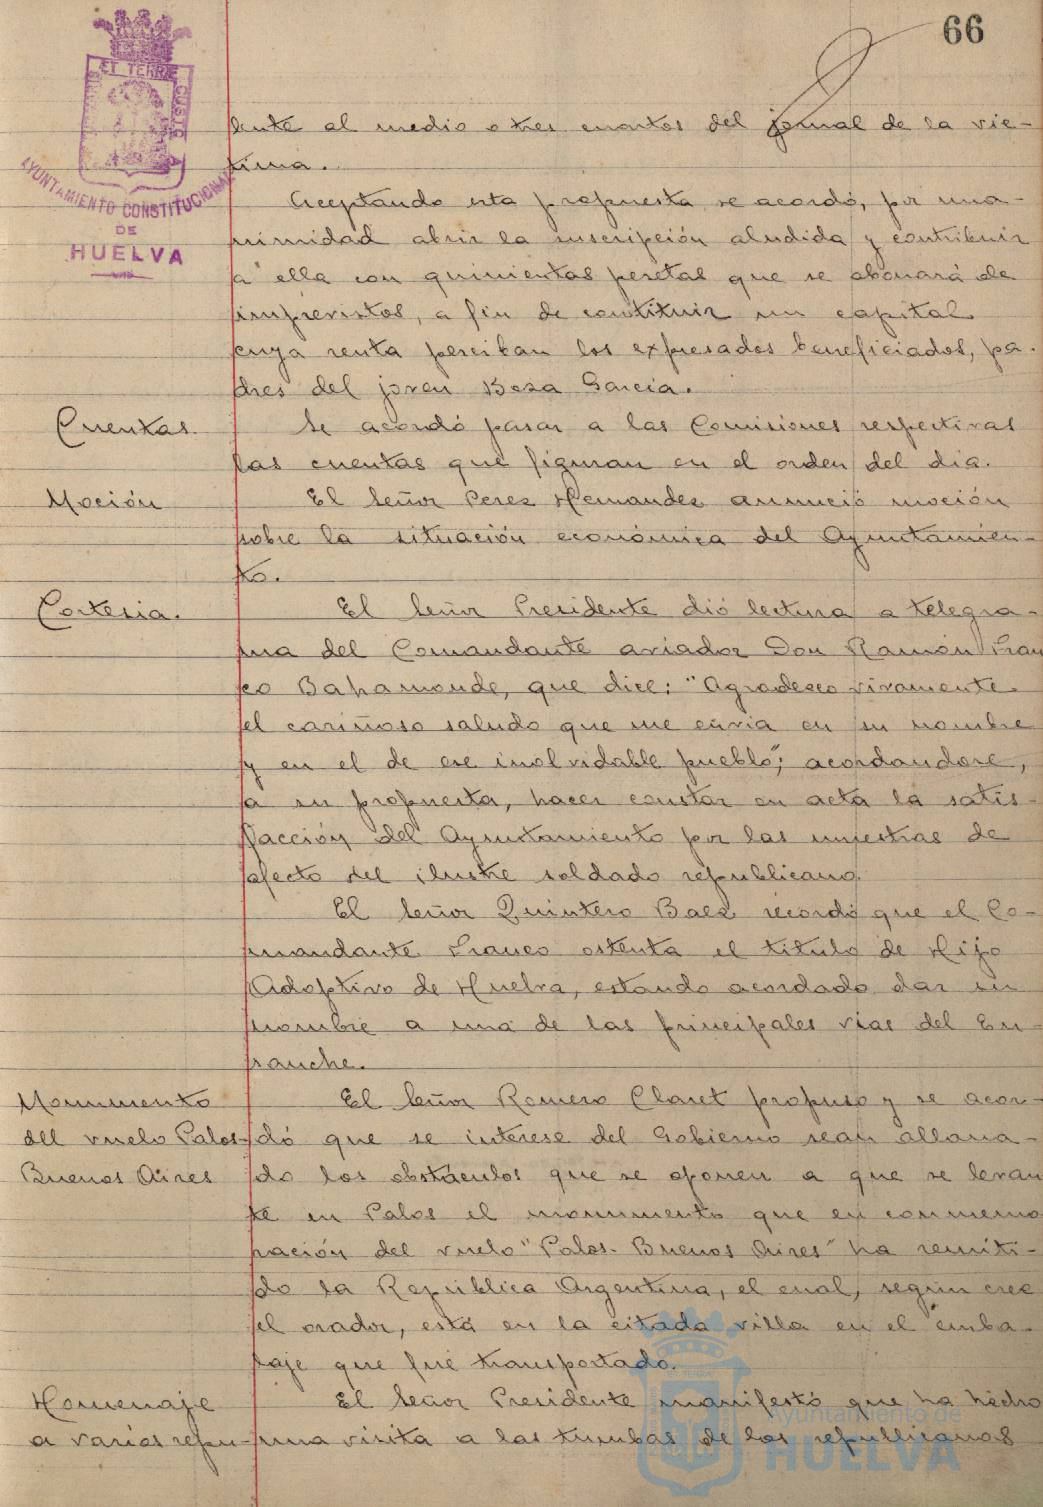 66
ET TERRÆ CUSTO
AYUNTAMIENTO CONSTITUCIONAL
DE
HUELVA
lente al medio o tres cuartos del jornal de la vic-
tima.
Aceptando esta propuesta se acordó, por una-
nimidad abrir la suscripción aludida y contribuir
a ella con quinientas pesetas que se abonará de
imprevistos, a fin de contituir un capital
cuya renta perciban los expresados beneficiados, pa-
dres del joven Beza Garcia.
Cuentas.
Se acordó pasar a las Comisiones respectivas
las cuentas que figuran en el orden del dia.
Moción
El Señor Perez Hernandez anunció moción
sobre la situación económica del Ayuntamien-
to.
Cortesia.
El Señor Presidente dió lectura a telegra-
ma del Comandante aviador Don Ramón Fran
co Bahamonde, que dice: "Agradezco vivamente
el cariñoso saludo que me envia en su nombre
y en el de ese inolvidable pueblo"; acordandose,
a su propuesta, hacer constar en acta la satis-
facción del Ayuntamiento por las muestras de
afecto del ilustre soldado republicano.
El Señor Quintero Baez recordó que el Co-
mandante Franco ostenta el titulo de Hijo
Adoptivo de Huelva, estando acordado dar su
nombre a una de las principales vias del En-
sanche.
Monumento
del vuelo Palos-
Buenos Aires
El Señor Romero Claret propuso y se acor-
dó que se interese del Gobierno sean allana-
do los obstáculos que se oponen a que se levan
te en Palos el monumento que en conmemo
ración del vuelo "Palos-Buenos Aires" ha remiti-
do la República Argentina, el cual, según cree
el orador, está en la citada villa en el emba-
laje que fué transportado.
Homenaje
a varios repu-
El Señor Presidente manifestó que ha hecho
una visita a las tumbas de los republicanos
Ayuntamiento de
HUELVA